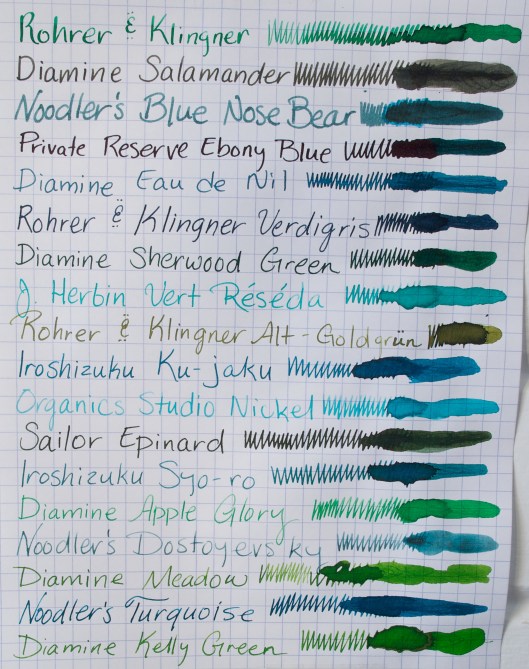 Rohrer & Klingner
Diamine Salamander
Noodler's Blue Nose Bear
Private Reserve Ebony Blue
Diamine Eau de Nil
Rohrer & Klingner Verdigris
Diamine Sherwood Green
J. Herbin Vert Réséda
Rohrer & Klingner Alt-Goldgrün
Iroshizuku Ku-jaku
Organics Studio Nickel
Sailor Epinard
Iroshizuku Syo-ro
Diamine Apple Glory
Noodler's Dostoyevsky
Diamine Meadow
Noodler's Turquoise
Diamine Kelly Green